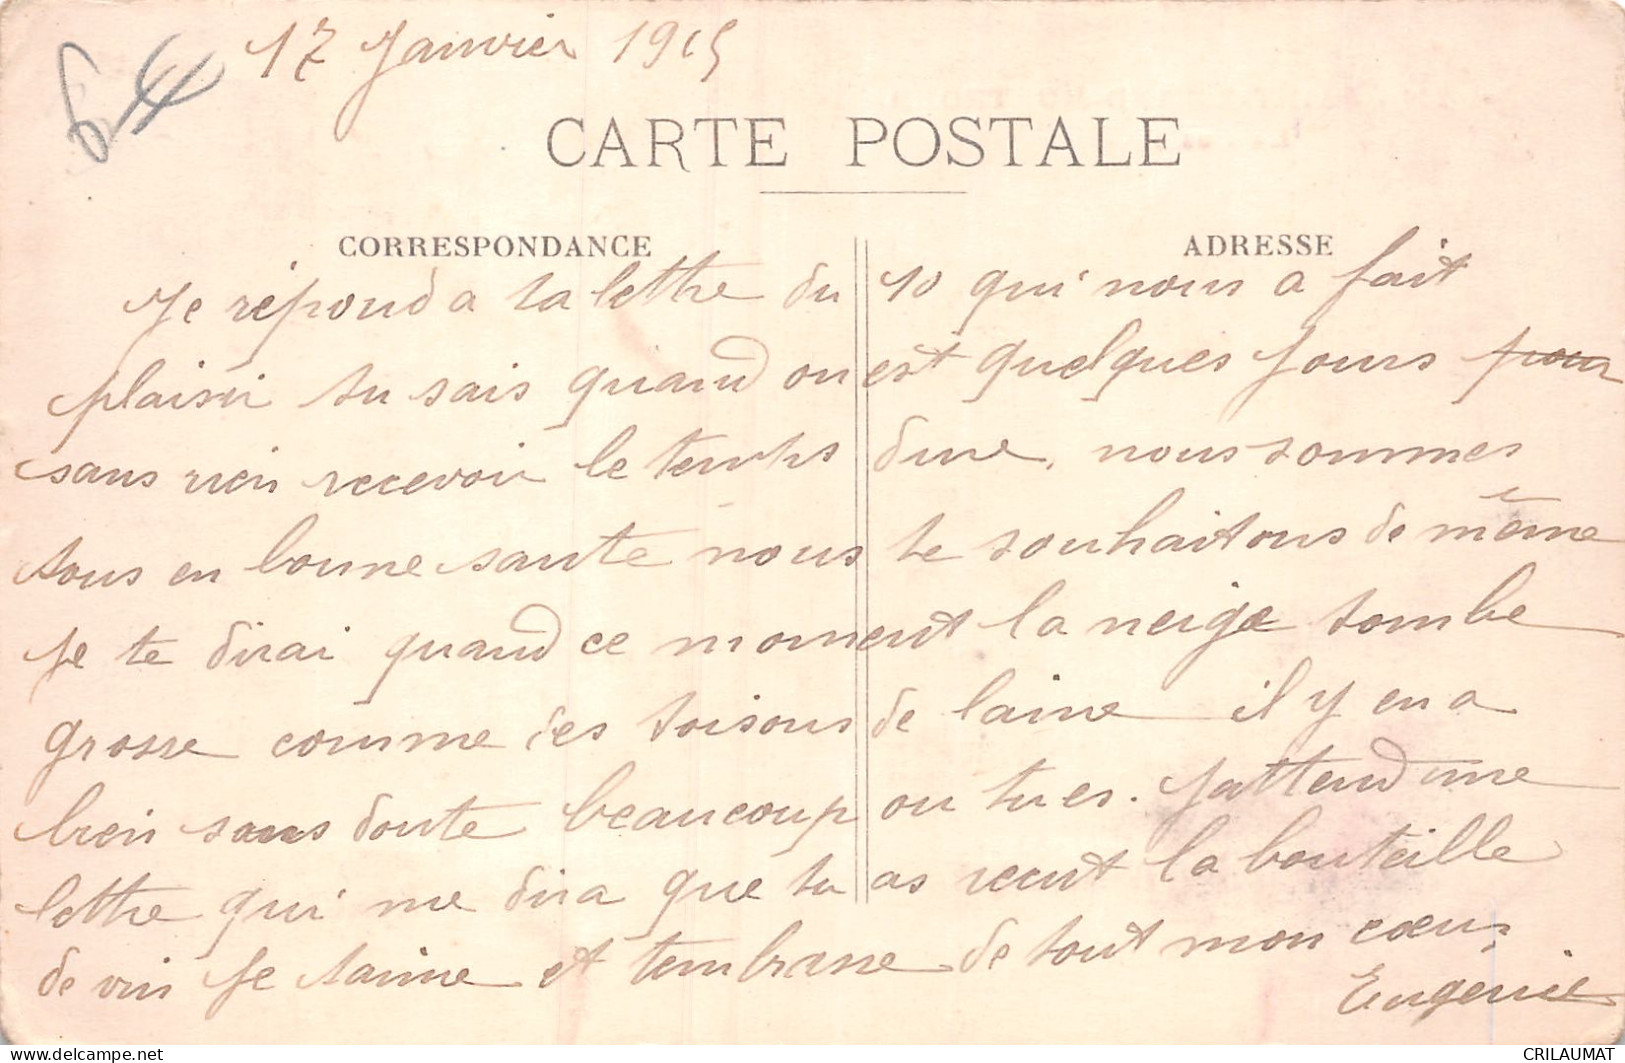 17 Janvier 1915
CARTE POSTALE
CORRESPONDANCE
ADRESSE
Je répond a ta lettre du 10 qui nous a fait
plaisir tu sais quand on est quelques jours pour
sans rien recevoir le temps dure, nous sommes
tous en bonne sante nous te souhaitons de même
Je te dirai quand ce moment la neige tombe
grosse comme des toisons de laine il y en a
bien sans doute beaucoup ou tu es. Jattend une
lettre qui me dira que tu as recut la bouteille
de vin Je taime et tembrasse de tout mon cœur
Eugenie
delcampe.net
CRILAUMAT